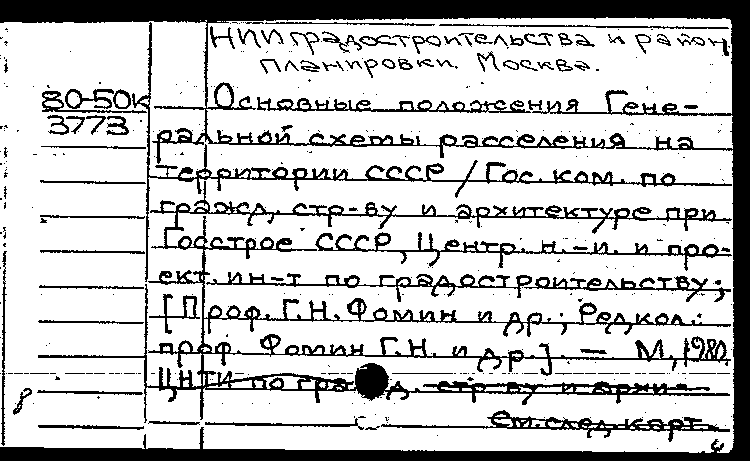 НИИ градостроительства и район.
планировки. Москва.
80-50к
3773
Основные положения Гене-
ральной схемы расселения на
территории СССР / Гос. ком. по
гражд. стр-ву и архитектуре при
Госстрое СССР, Центр. н.-и. и про-
ект. ин-т по градостроительству;
[Проф. Г.Н. Фомин и др.; Редкол.:
проф. Фомин Г.Н. и др.]. — М, 1980,
ЦНТИ по гражд. стр-ву и архи-
См. след. карт.
8